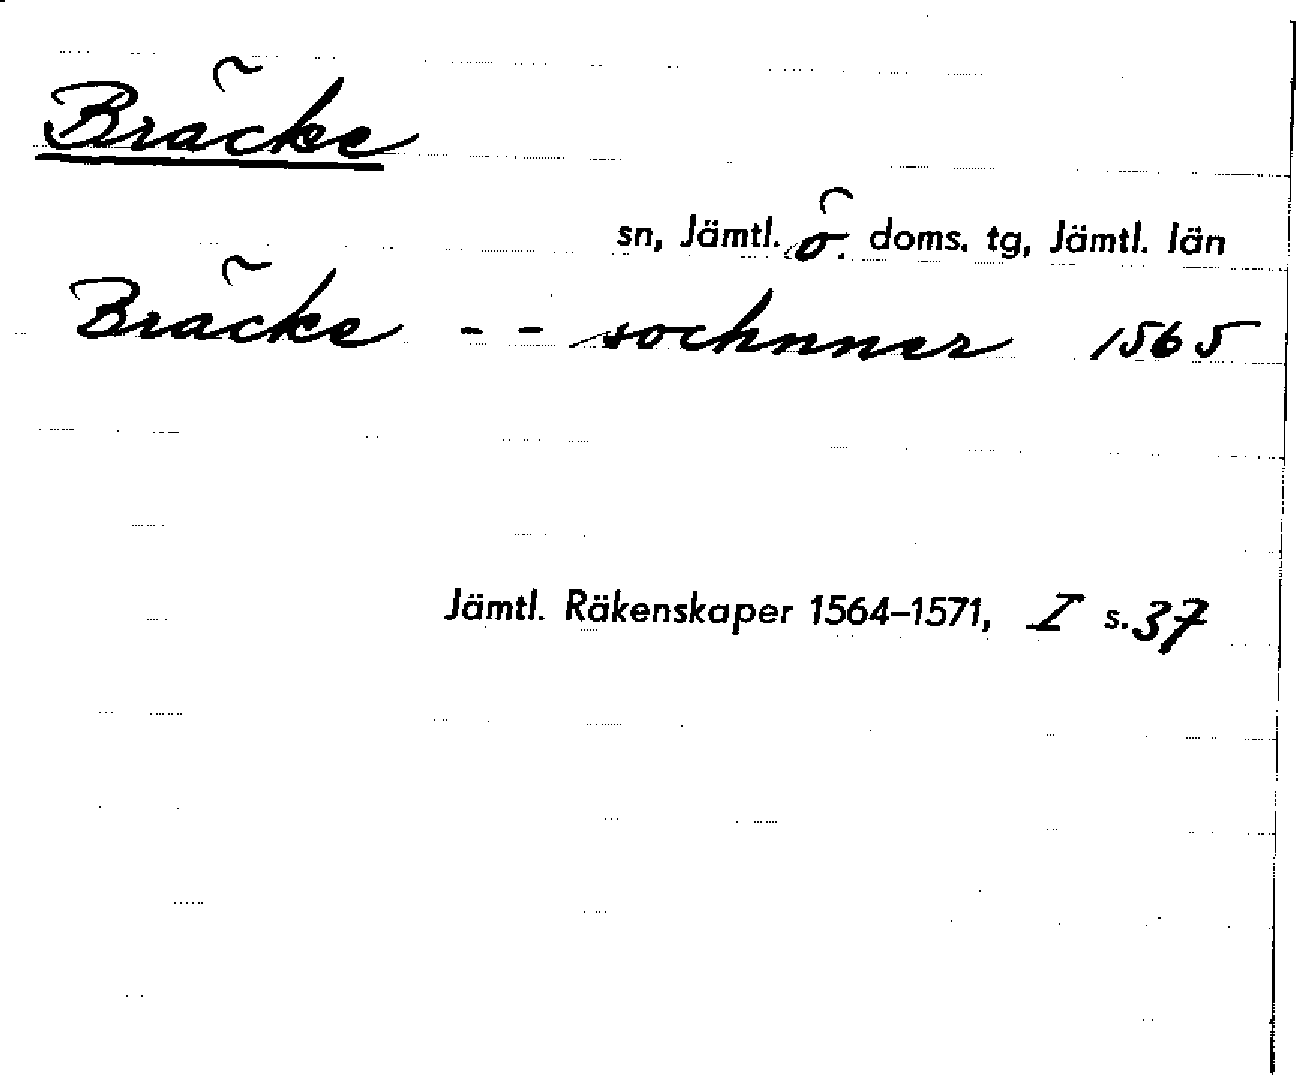 Bräcke
sn, Jämtl. ö. doms. tg, Jämtl. län
Bräcke - - sochnner 1565
Jämtl. Räkenskaper 1564–1571, I s. 37